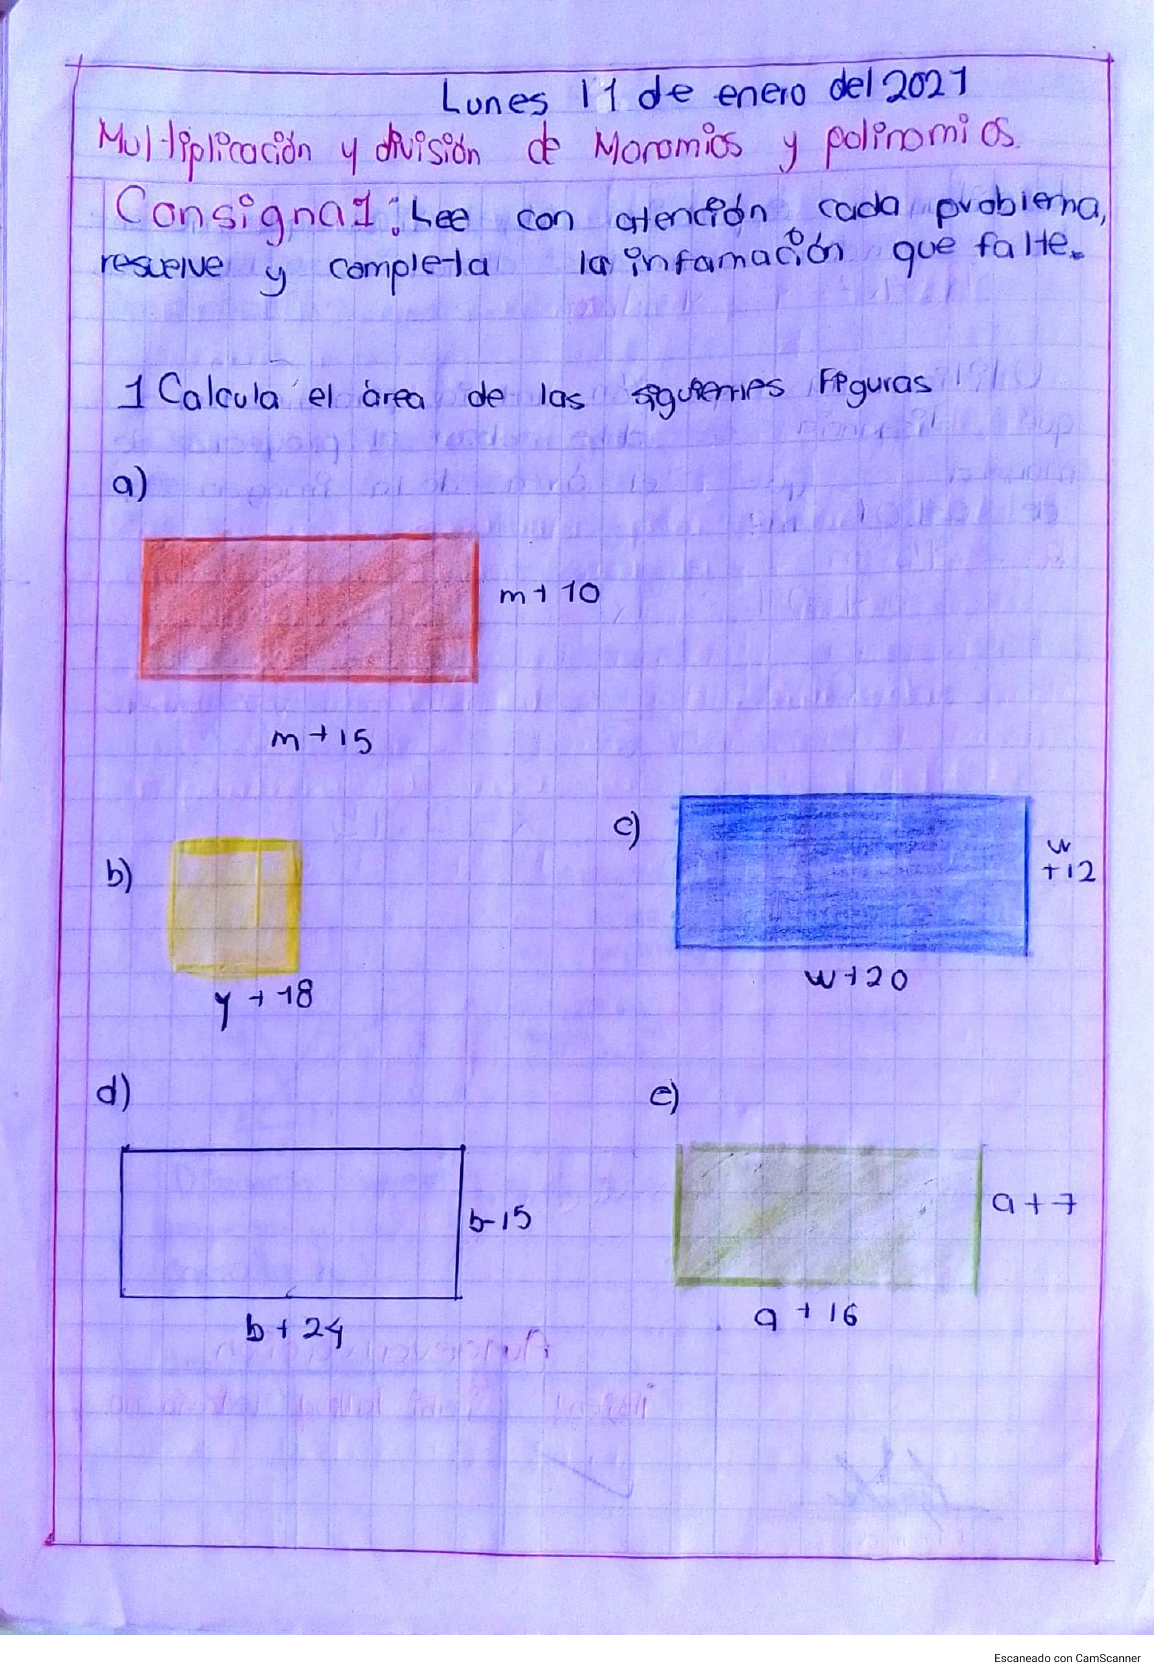 Lunes 11 de enero del 2021
Multiplicación y división de Monomios y polinomios.
Consigna1: Lee con atención cada problema,
resuelve y completa la infamación que falte.
1 Calcula el àrea de las siguientes Figuras
a)
m+10
m+15
b)
y+18
c)
w
+12
w+20
d)
b-15
b+24
e)
a+7
a+16
Escaneado con CamScanner